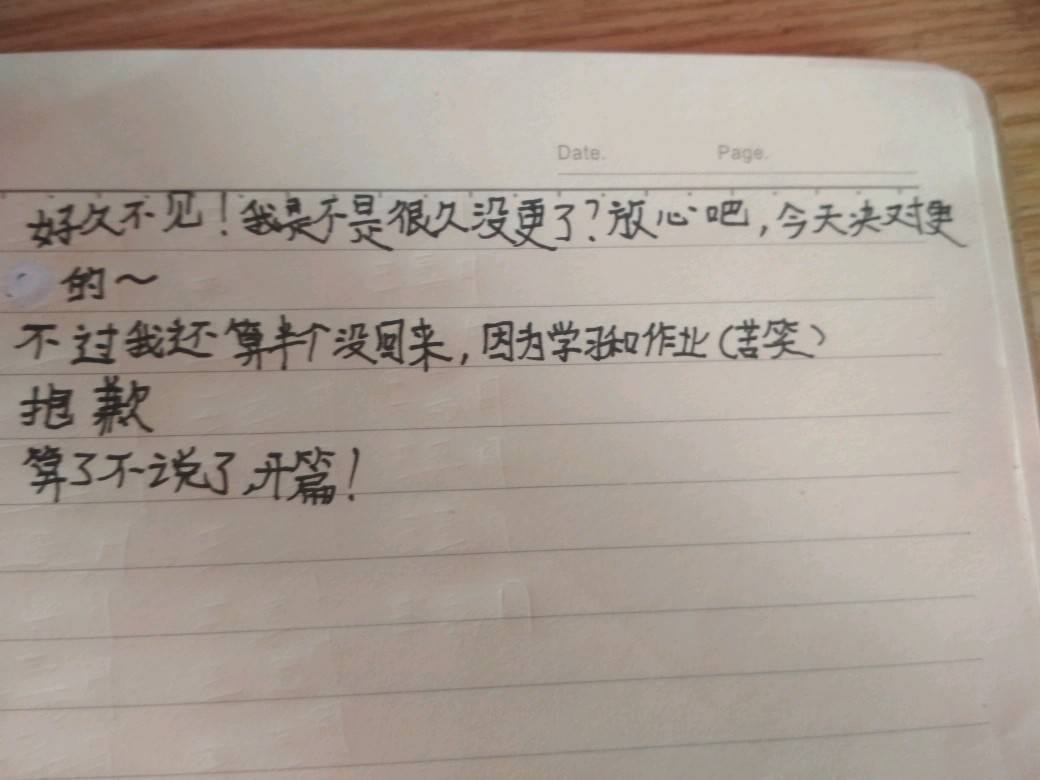 Date. Page.
好久不见！我是不是很久没更了？放心吧，今天决对更
的～
不过我还算半个没回来，因为学习和作业（苦笑）
抱歉
算了不说了，开篇！